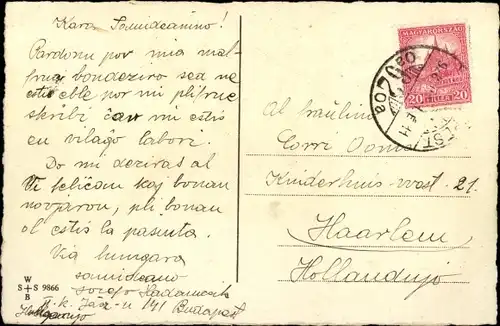 Kara Samideanino!
Pardonu por mia mal-
frua bondeziro sed ne
estis eble por mi plifrue
skribi ĉar mi estis
en vilaĝo labori.
Do mi deziras al
Vi feliĉan kaj bonan
novjaron, pli bonan
ol estis la pasinta.
Via hungara
samideano
Budapest
Hungarujo
W
S S 9866
B
MAGYARORSZÁG
20 20
Al fraŭlino
Corri
Kinderhuis vest. 21.
Haarlem
Hollandujo